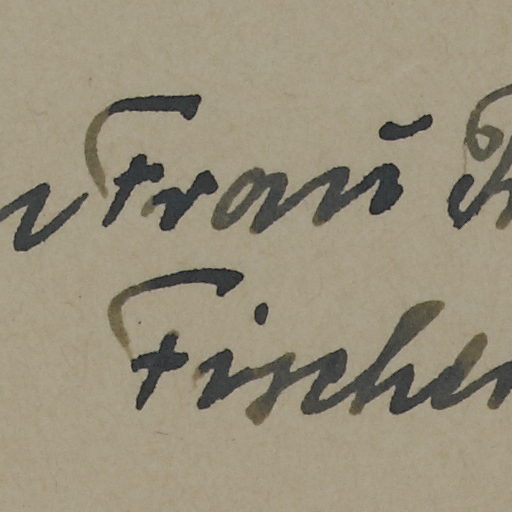 Frau
Fischer